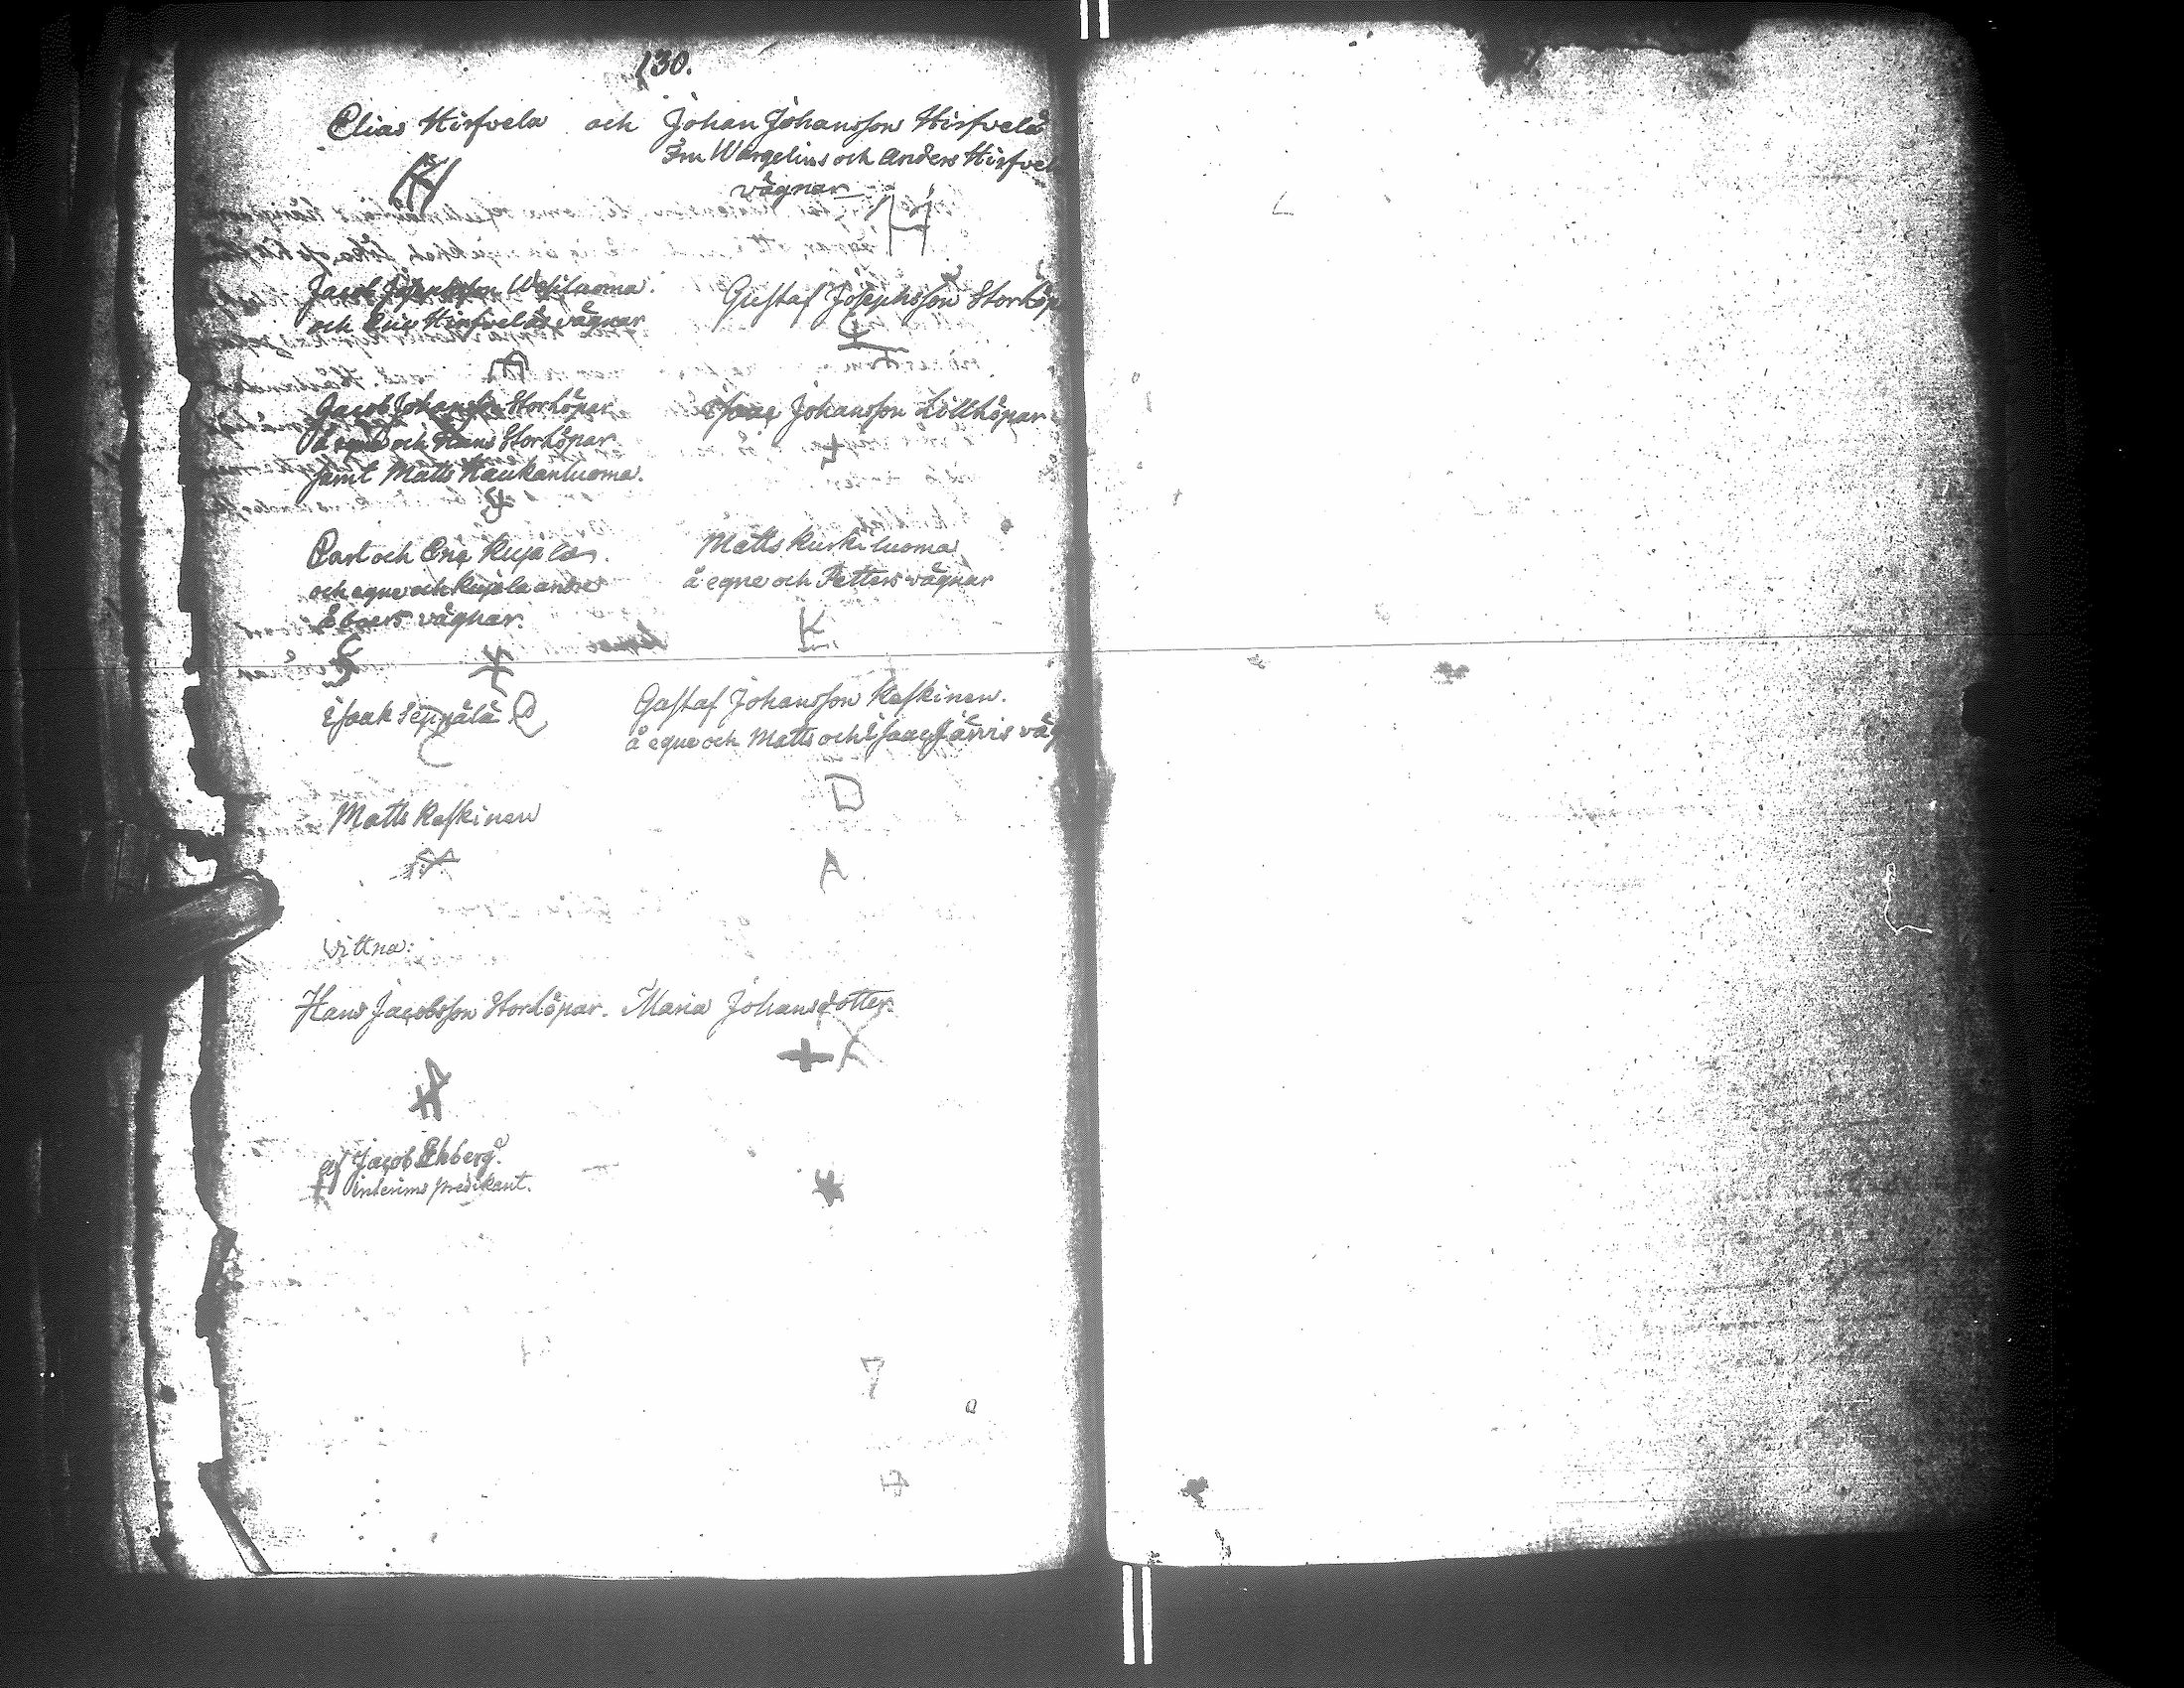 130.
Elias Hirfvela och Johan Johansson Hirfvelä
Wargelius och Anders Hirfve
vägnar
Jacob Wesiluoma.
och Hirfveläs vägnar
Gustaf Josephsson Storköp
Jacob Johansson Storköpar
å egne och Hans Storköpar
samt Matts Haukanluoma.
Isaac Johansson Lillköpar
Carl och Eric Kujala
och egne och Kujala andre
Eboers vägnar.
Matts Kurkiluoma
å egne och Petters vägnar
K
Isaak Seppälä
Gustaf Johansson Keskinen.
å egne och Matts och Isaac Järvis väg
D
Matts Keskinen
A
Vittna:
Hans Jacobsson Storköpar. Maria Johansdotter.
Jacob Ekberg.
interims predikant.